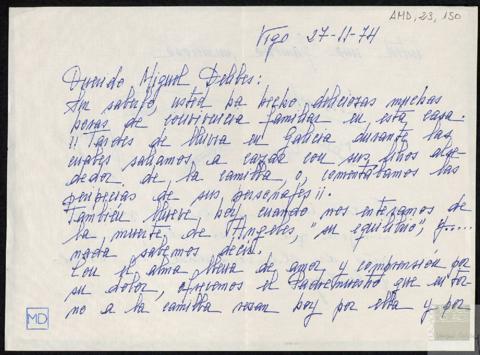 AMD, 23, 150
Vigo 27-11-74
Querido Miguel Delibes:
Sin saberlo, usted ha hecho deliciosas muchas
horas de convivencia familiar en esta casa.
¡¡Tardes de lluvia en Galicia durante las
cuales salíamos a cazar con sus libros alre
dedor de la camilla o, comentábamos las
peripecias de sus personajes!!.
También llueve, hoy, cuando nos enteramos de
la muerte de Angeles, "su equilibrio", y.....
nada sabemos decir.
Con el alma llena de amor y comprensión por
su dolor, ofrecemos el Padrenuestro que en tor
no a la camilla rezan hoy por ella y por
MD